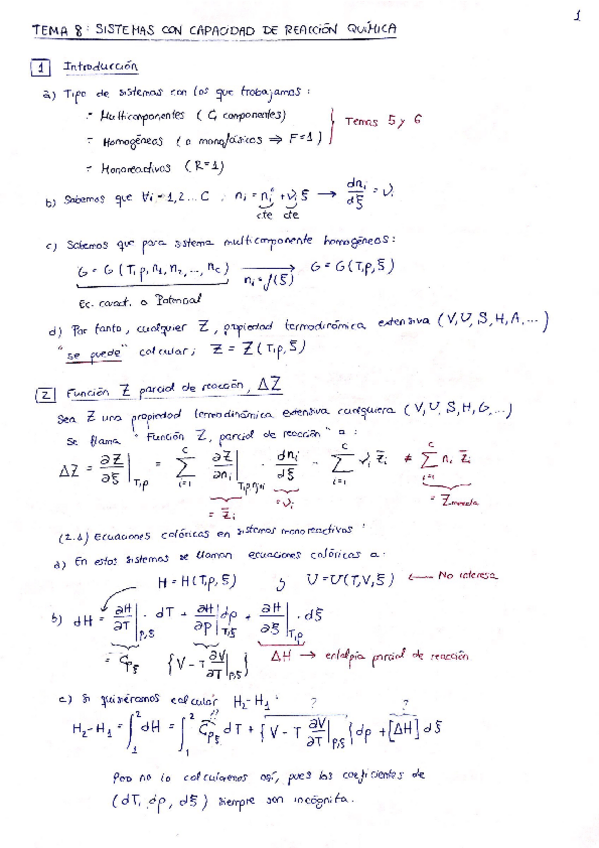 1
TEMA 8: SISTEMAS CON CAPACIDAD DE REACCIÓN QUÍMICA
1 Introducción
a) Tipo de sistemas con los que trabajamos:
- Multicomponentes (C, componentes)
- Homogéneos (o monofásicos ⇒ F=1) } Temas 5 y 6
- Monoreactivos (R=1)
b) Sabemos que ∀i = 1,2...C ; nᵢ = nᵢ° + νᵢ ξ → dnᵢ/dξ = νᵢ
cte cte
c) Sabemos que para sistema multicomponente homogéneos:
G = G(T,p,n₁,n₂,...,n_C) → nᵢ = f(ξ) G = G(T,p,ξ)
Ec. caract. o Potencial
d) Por tanto, cualquier Z, propiedad termodinámica extensiva (V,U,S,H,A,...)
"se puede" calcular; Z = Z(T,p,ξ)
2 Función Z parcial de reacción, ΔZ
Sea Z una propiedad termodinámica extensiva cualquiera (V,U,S,H,G,...)
se llama "Función Z, parcial de reacción" a:
ΔZ = ∂Z/∂ξ|T,p = Σᵢ₌₁ᶜ ∂Z/∂nᵢ|T,p,nj≠i · dnᵢ/dξ = Σᵢ₌₁ᶜ νᵢ z̄ᵢ ≠ Σᵢ₌₁ᶜ nᵢ z̄ᵢ
= z̄ᵢ = νᵢ = Z mezcla
(2.1) Ecuaciones calóricas en sistemas monoreactivos:
a) En estos sistemas se llaman ecuaciones calóricas a:
H = H(T,p,ξ) y U = U(T,V,ξ) ← No interesa
b) dH = ∂H/∂T|p,ξ · dT + ∂H/∂p|T,ξ dp + ∂H/∂ξ|T,p · dξ
= Cp,ξ {V - T ∂V/∂T|p,ξ} ΔH → entalpía parcial de reacción
c) Si quisiéramos calcular H₂-H₁: ? ?
H₂-H₁ = ∫₁² dH = ∫₁² Cp,ξ dT + {V - T ∂V/∂T|p,ξ} dp + [ΔH] dξ
Pero no lo calculamos así, pues los coeficientes de
(dT, dp, dξ) siempre son incógnita.